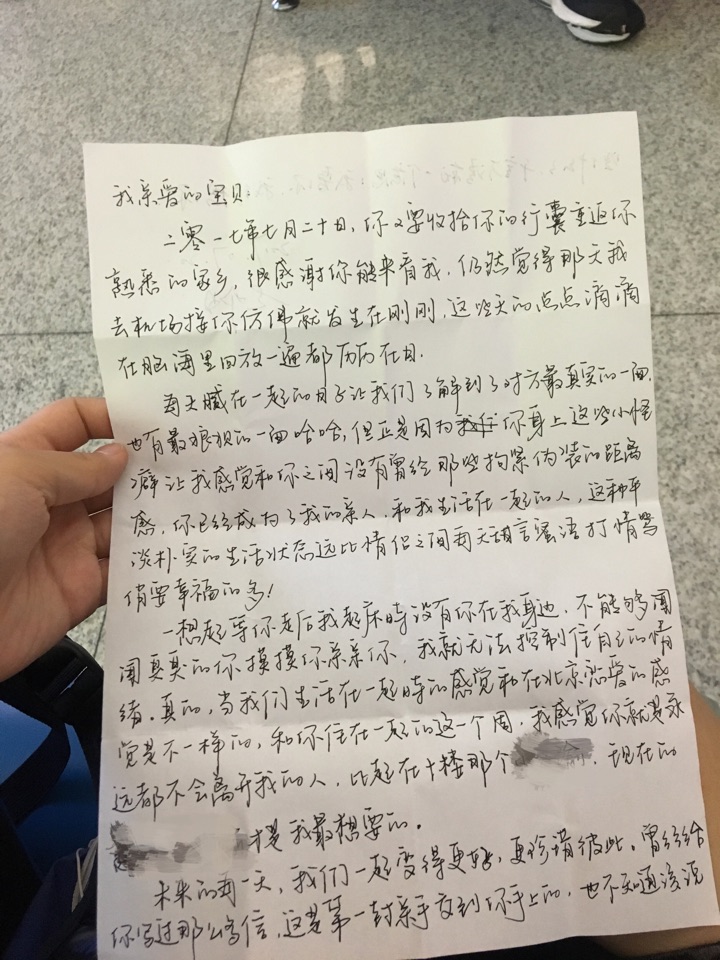 我亲爱的宝贝:
二零一七年七月二十日,你又要收拾你的行囊重返你
熟悉的家乡,很感谢你能来看我,仍然觉得那天我
去机场接你仿佛就发生在刚刚,这些天的点点滴滴
在脑海里回放一遍都历历在目.
每天腻在一起的日子让我们了解到了对方最真实的一面.
也有最狼狈的一面哈哈,但正是因为你身上这些小怪
癖让我感觉和你之间没有曾经那些拘紧伪装的距离
感,你已经成为了我的亲人,和我生活在一起的人,这种平
淡朴实的生活状态远比情侣之间每天甜言蜜语打情骂
俏要幸福的多!
一想起等你走后我起床时没有你在我身边,不能够闻
闻臭臭的你摸摸你亲亲你,我就无法控制住自己的情
绪.真的,当我们生活在一起时的感觉和在北京恋爱的感
觉是不一样的,和你住在一起的这一个周,我感觉你就是永
远都不会离开我的人,比起在十楼那个 . 现在的
才是我最想要的.
未来的每一天,我们一起变得更好,更珍惜彼此.曾经给
你写过那么多信,这是第一封亲手交到你手上的,也不知道该说